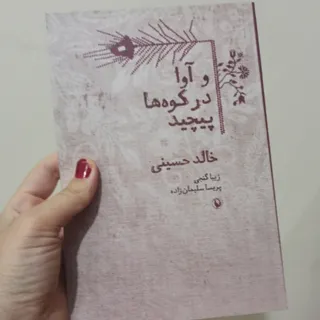 و آوا
در کوه‌ها
پیچید
خالد حسینی
زیبا گنجی
پریسا سلیمان‌زاده